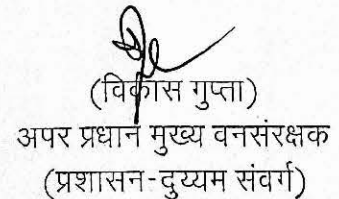 (विकास गुप्ता)
अपर प्रधान मुख्य वनसंरक्षक
(प्रशासन-दुय्यम संवर्ग)